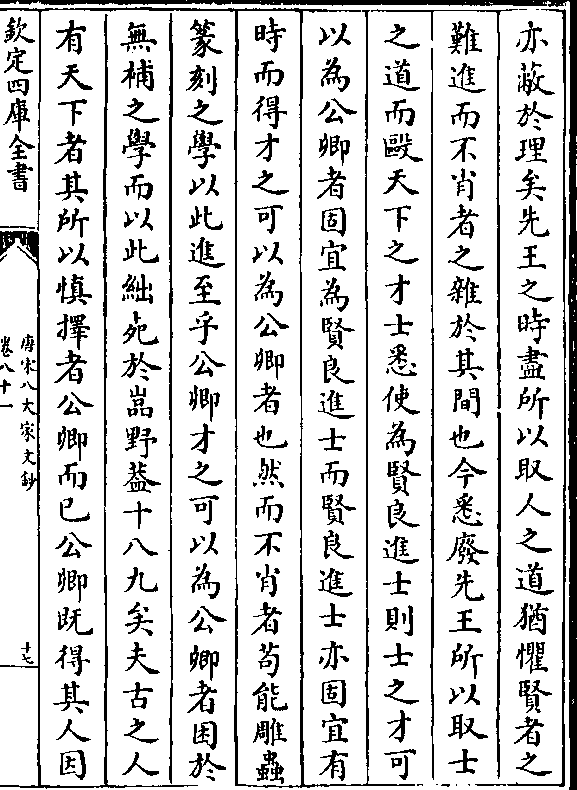 亦蔽於理矣先王之時盡所以取人之道猶懼賢者之
難進而不肖者之雜於其間也今悉廢先王所以取士
之道而毆天下之才士悉使為賢良進士則士之才可
以為公卿者固宜為賢良進士而賢良進士亦固宜有
時而得才之可以為公卿者也然而不肖者苟能雕蟲
篆刻之學以此進至乎公卿才之可以為公卿者困於
無補之學而以此絀死於嵓野葢十八九矣夫古之人
有天下者其所以慎擇者公卿而已公卿既得其人因
欽定四庫全書
唐宋八大家文鈔
卷八十一
十七